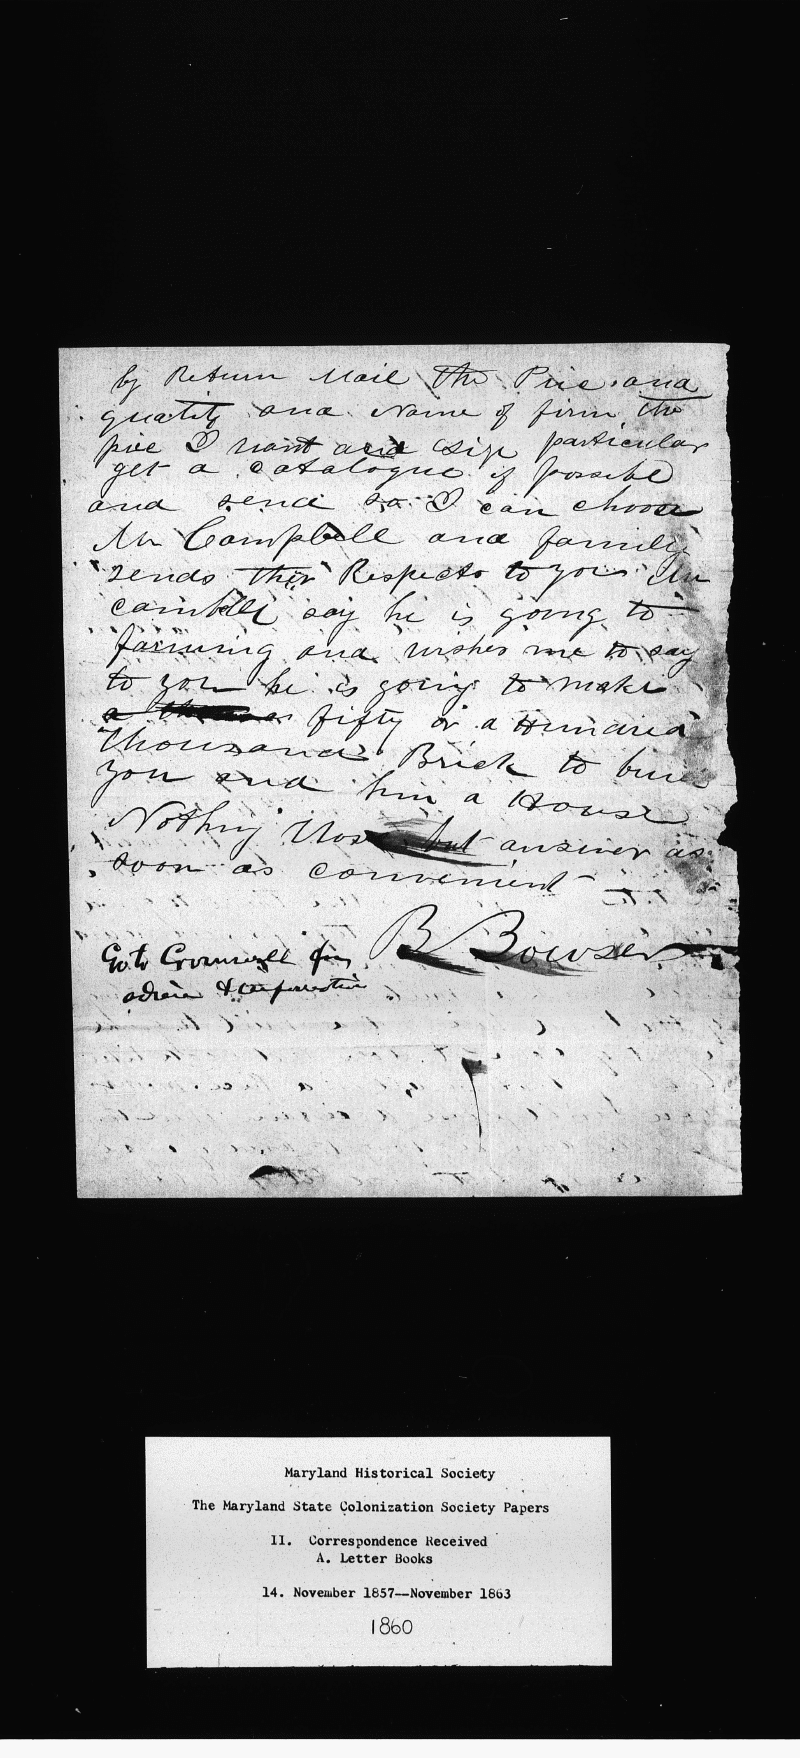 by Return Mail the Price and
quality and Name of firm the
price I want and size particular
get a catalogue if possible
and send so I can choose
Mr Campbell and family
sends their Respects to you Mr
cambell say he is going to
farming and wishes me to say
to you he is going to make
fifty or a Hundred
thousand Brick to build
you and him a House
Nothing but answer as
soon as convenient
B Bowser
Go to Cromwell for
& information
Maryland Historical Society
The Maryland State Colonization Society Papers
11. Correspondence Received
A. Letter Books
14. November 1857--November 1863
1860